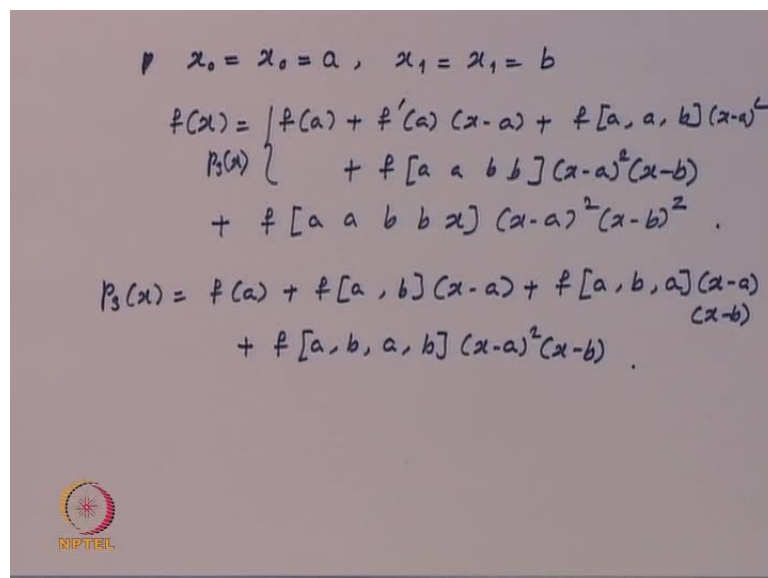 x₀ = x₀ = a , x₁ = x₁ = b
f(x) = { f(a) + f'(a) (x-a) + f[a, a, b](x-a)²
p₃(x) + f[a a b b](x-a)²(x-b)
+ f[a a b b x] (x-a)²(x-b)² .
p₃(x) = f(a) + f[a, b](x-a) + f[a, b, a](x-a)
(x-b)
+ f[a, b, a, b] (x-a)²(x-b) .
NPTEL